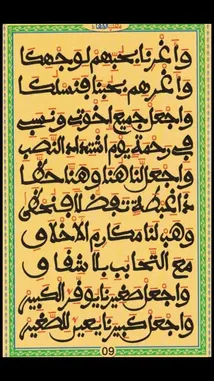 وأغرنا بحبهم لوجهكا
وأغرهم بحبنا
واجعل جميع أخوتي ونسبي
في رحمة يوم اشتداد النصب
واجعل لنا هنا
ذا غبطة تفضلا
وهب لنا مكارم الأخلاق
مع التحابب بلا شقاق
واجعل صغيرنا يوقر الكبير
واجعل كبيرنا يعين للصغير
09